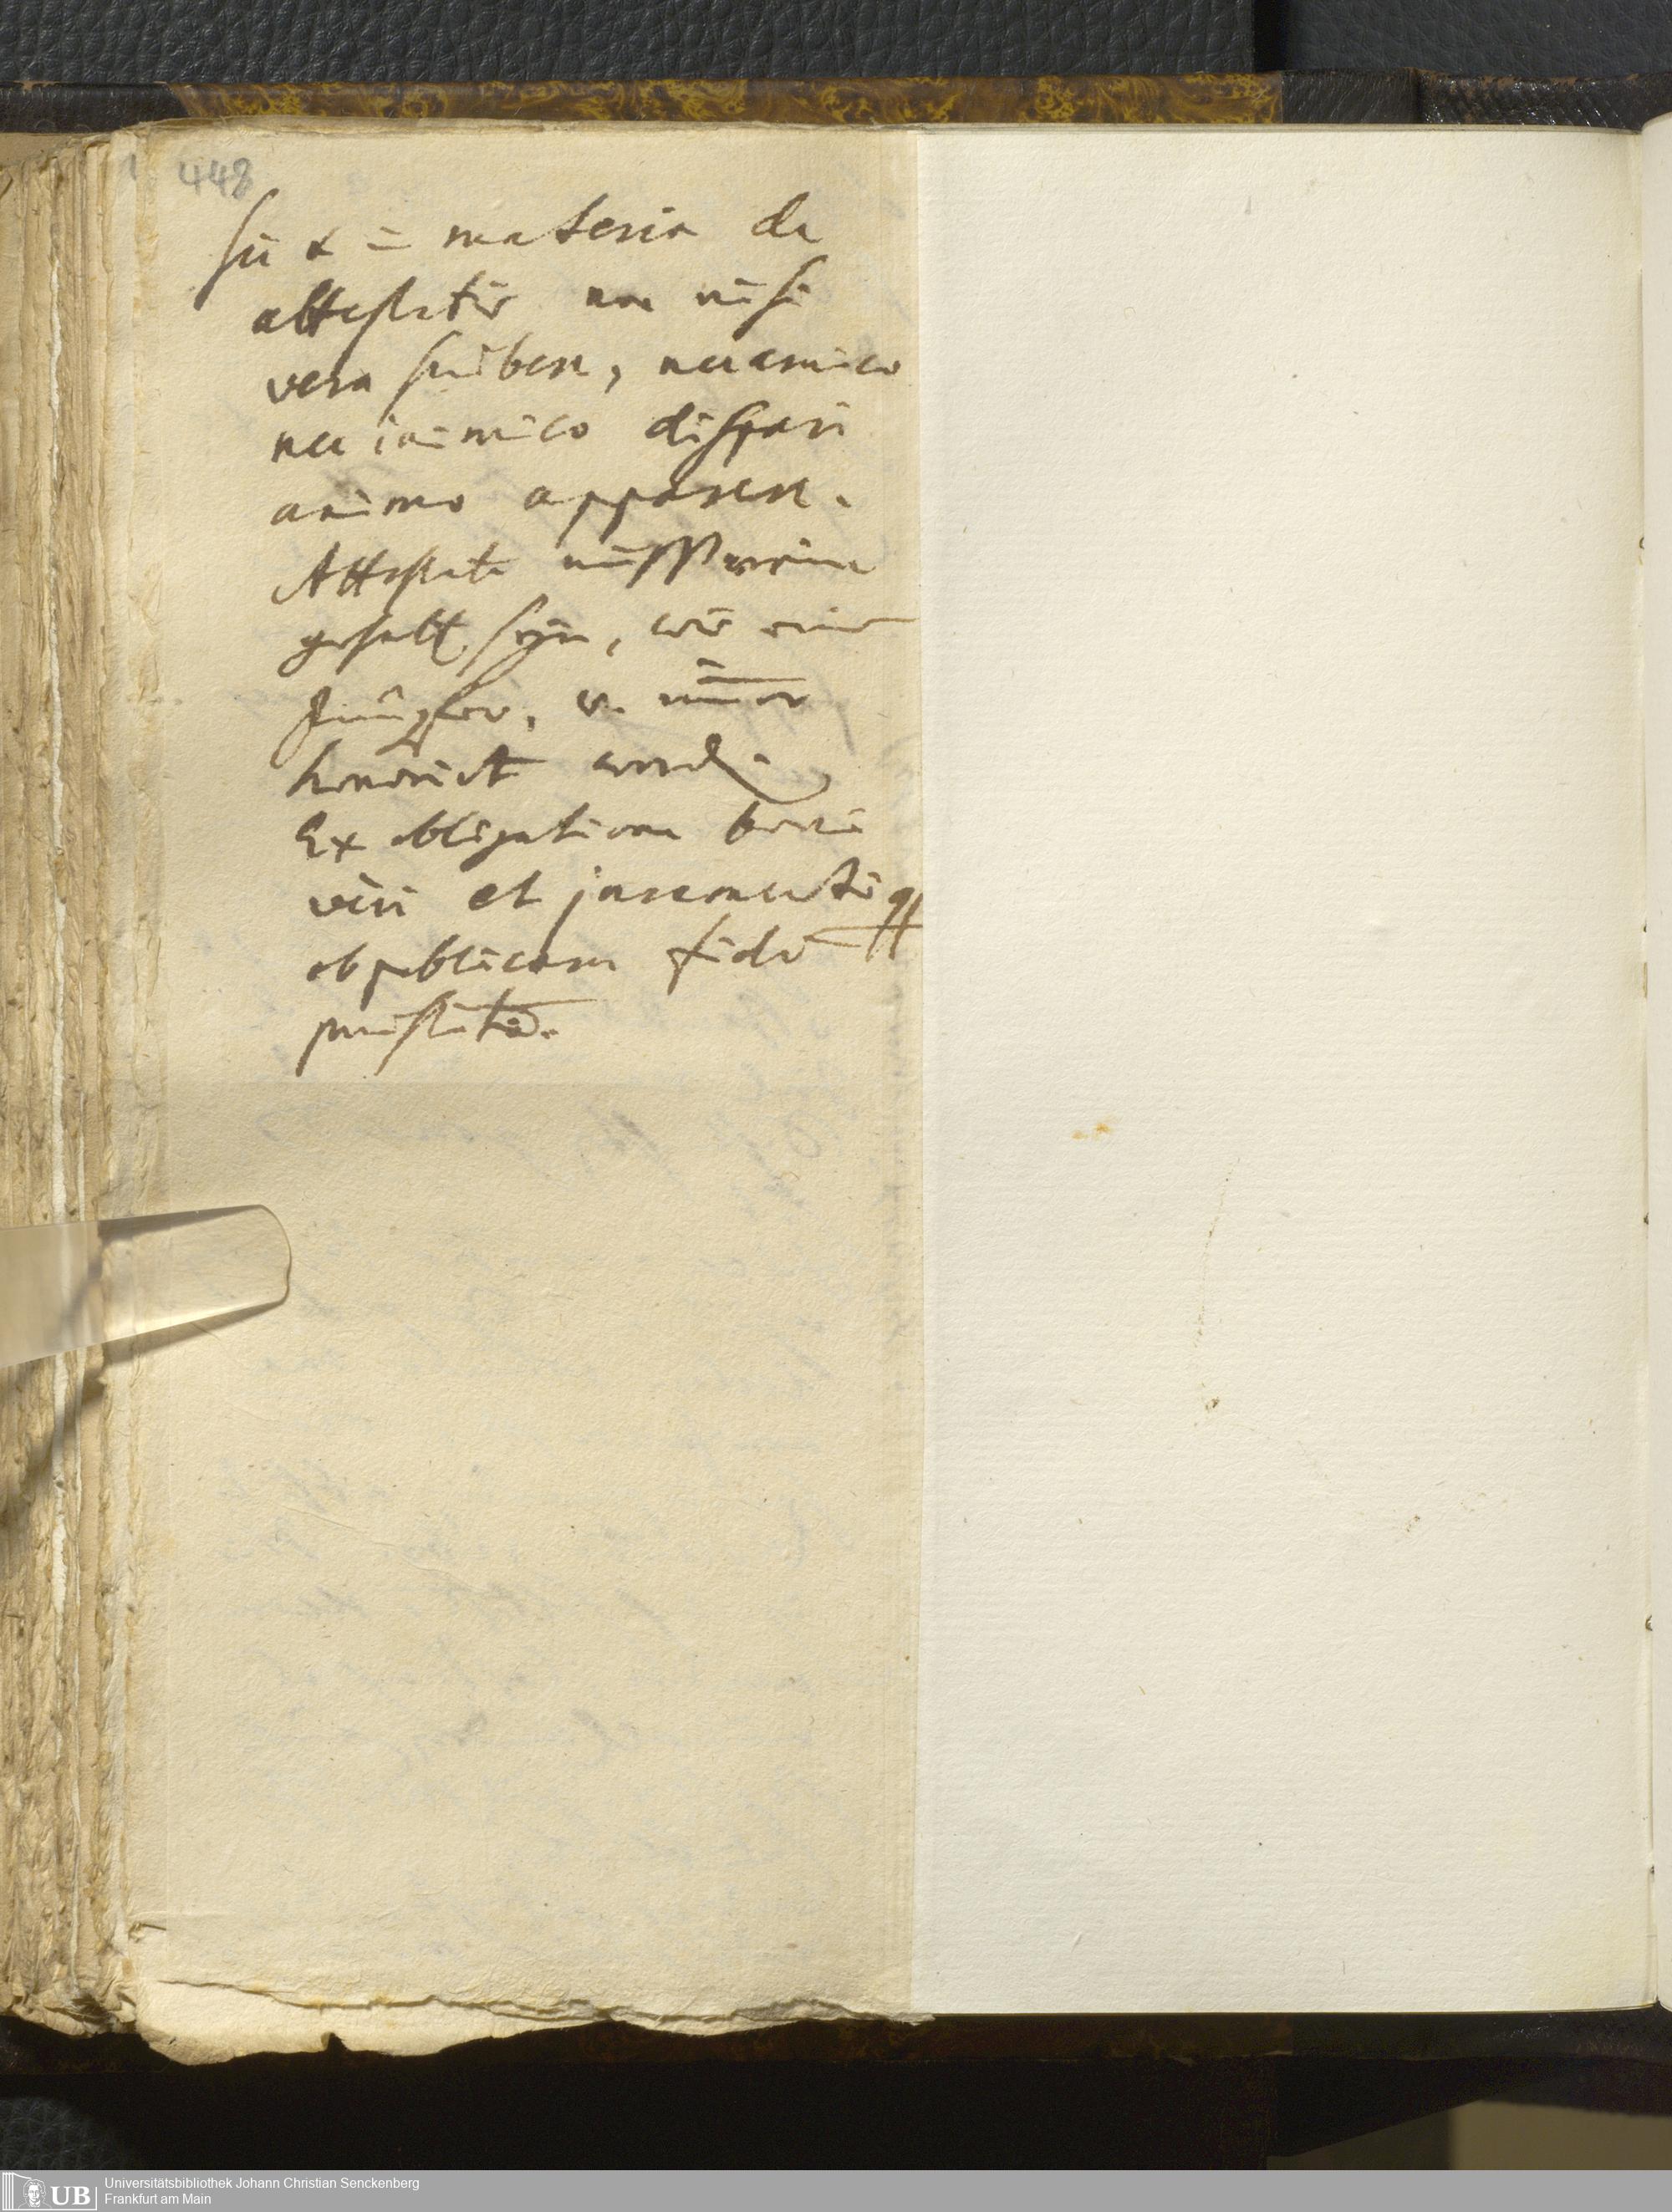 448
Sic & in materia de
attestatis non nisi
vera scribere, nec amico
nec inimico dispari
animo apparere.
Attestate müssen rein
gehalt. seyn, wie eine
Jungfer, u. immer
honorirt werden.
Ex obligatione boni
viri et juramenti
ob publicam fidem
praestita.
UB Universitätsbibliothek Johann Christian Senckenberg
Frankfurt am Main